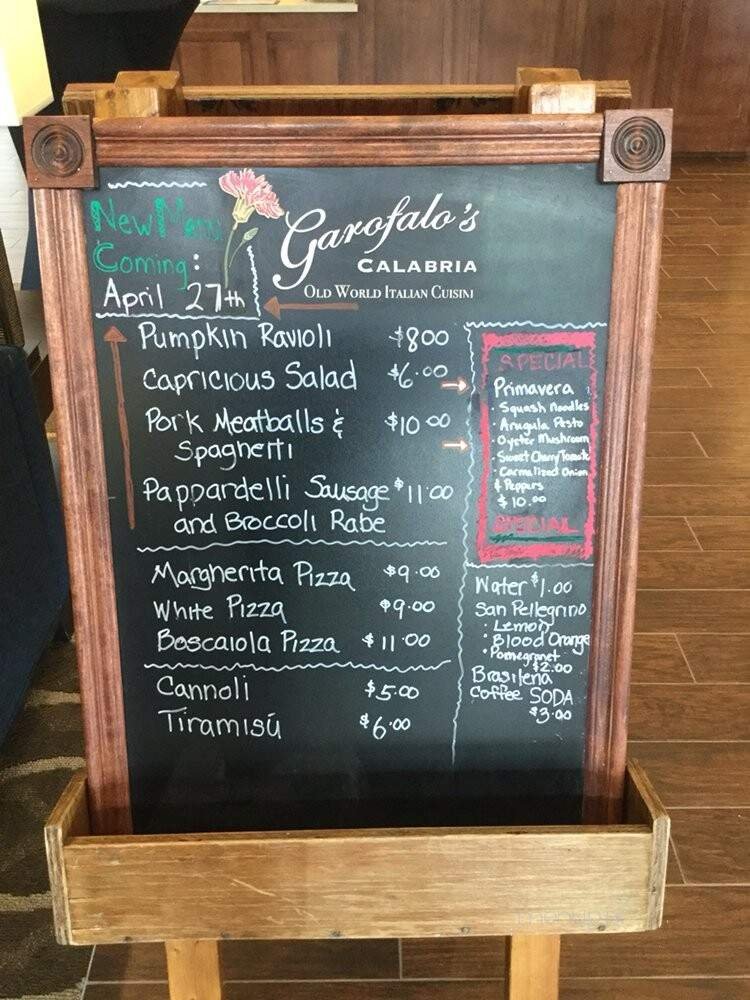 New Menu
Coming:
April 27th
Garofalo's
CALABRIA
OLD WORLD ITALIAN CUISINE
Pumpkin Ravioli $8.00
Capricious Salad $6.00
Pork Meatballs &
Spaghetti $10.00
Pappardelli Sausage $11.00
and Broccoli Rabe
Margherita Pizza $9.00
White Pizza $9.00
Boscaiola Pizza $11.00
Cannoli $5.00
Tiramisú $6.00
SPECIAL
Primavera
· Squash Noodles
· Arugula Pesto
· Oyster Mushroom
· Sweet Cherry Tomato
· Carmalized Onion
& Peppers
$10.00
SPECIAL
Water $1.00
San Pellegrino
: Lemon
: Blood Orange
· Pomegranet
$2.00
Brasilena
Coffee SODA
$3.00